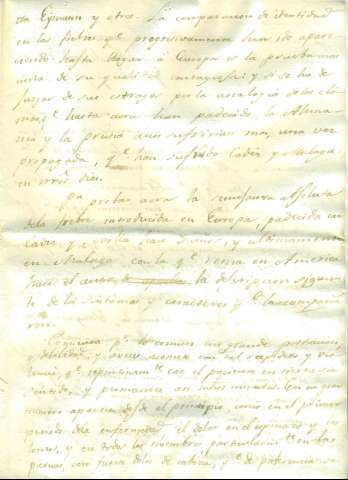 y otros. La comparacion de identidad
en las fiebres qe progresivamente han ido apare
ciendo hasta llegar à Europa es la prueba mas
de su qualidad contagiosa: y si se ha de
juzgar de sus estragos por la analogia de los cli
mas, qe hasta aora han padecido, la Alema
nia y la Prusia aun sufririan mas, una vez
propagada, qe han sufrido Cadiz y Malaga
en otros dias.
Pa probar aora la semejanza absoluta
de la fiebre introducida en Europa, padecida en
Cadiz y Sevilla tres años, y ultimamente
en Malaga con la qe reina en America
hace el autor la descripcion siguien
te de los sintomas y caracteres qe la acompaña
ron.
Comienza pr lo comun una grande postracion,
y debilidad; y veces con tal rapidez y vio
lencia, qe repentinamte cae el paciente en tierra sin
sentido, y permanece asi muchos minutos. En un gran
numero aparecia desde el principio, como en el primer
periodo de la enfermedad el dolor en el espinazo y
lomos, y en todos los miembros particularmte en las
piernas, con fuerte dolor de cabeza, y de preferencia